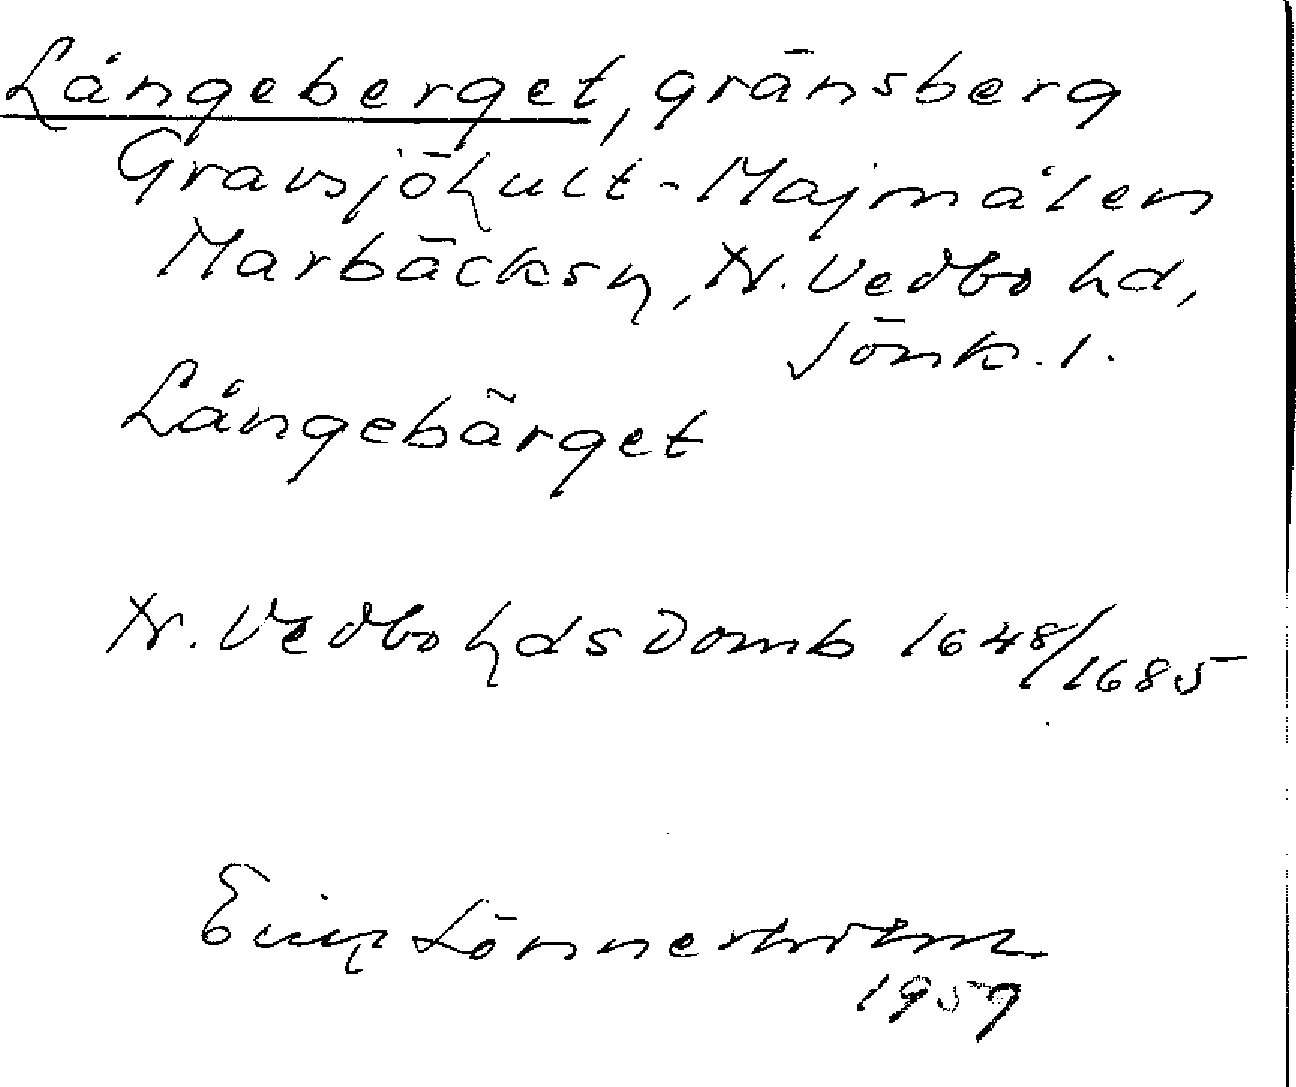 Långeberget, gränsberg
Gravsjöhult-Majmålen
Marbäcksn, N. Vedbo hd,
Jönk. l.
Långebärget
N. Vedbo hds Domb 1648/1685
Eric Lönnerholm
1959